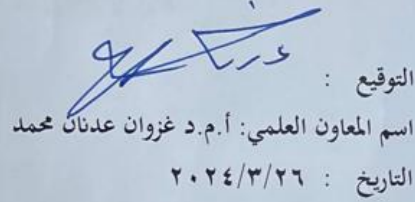 التوقيع :
اسم المعاون العلمي: أ.م.د غزوان عدنان محمد
التاريخ : ٢٠٢٤/٣/٢٦